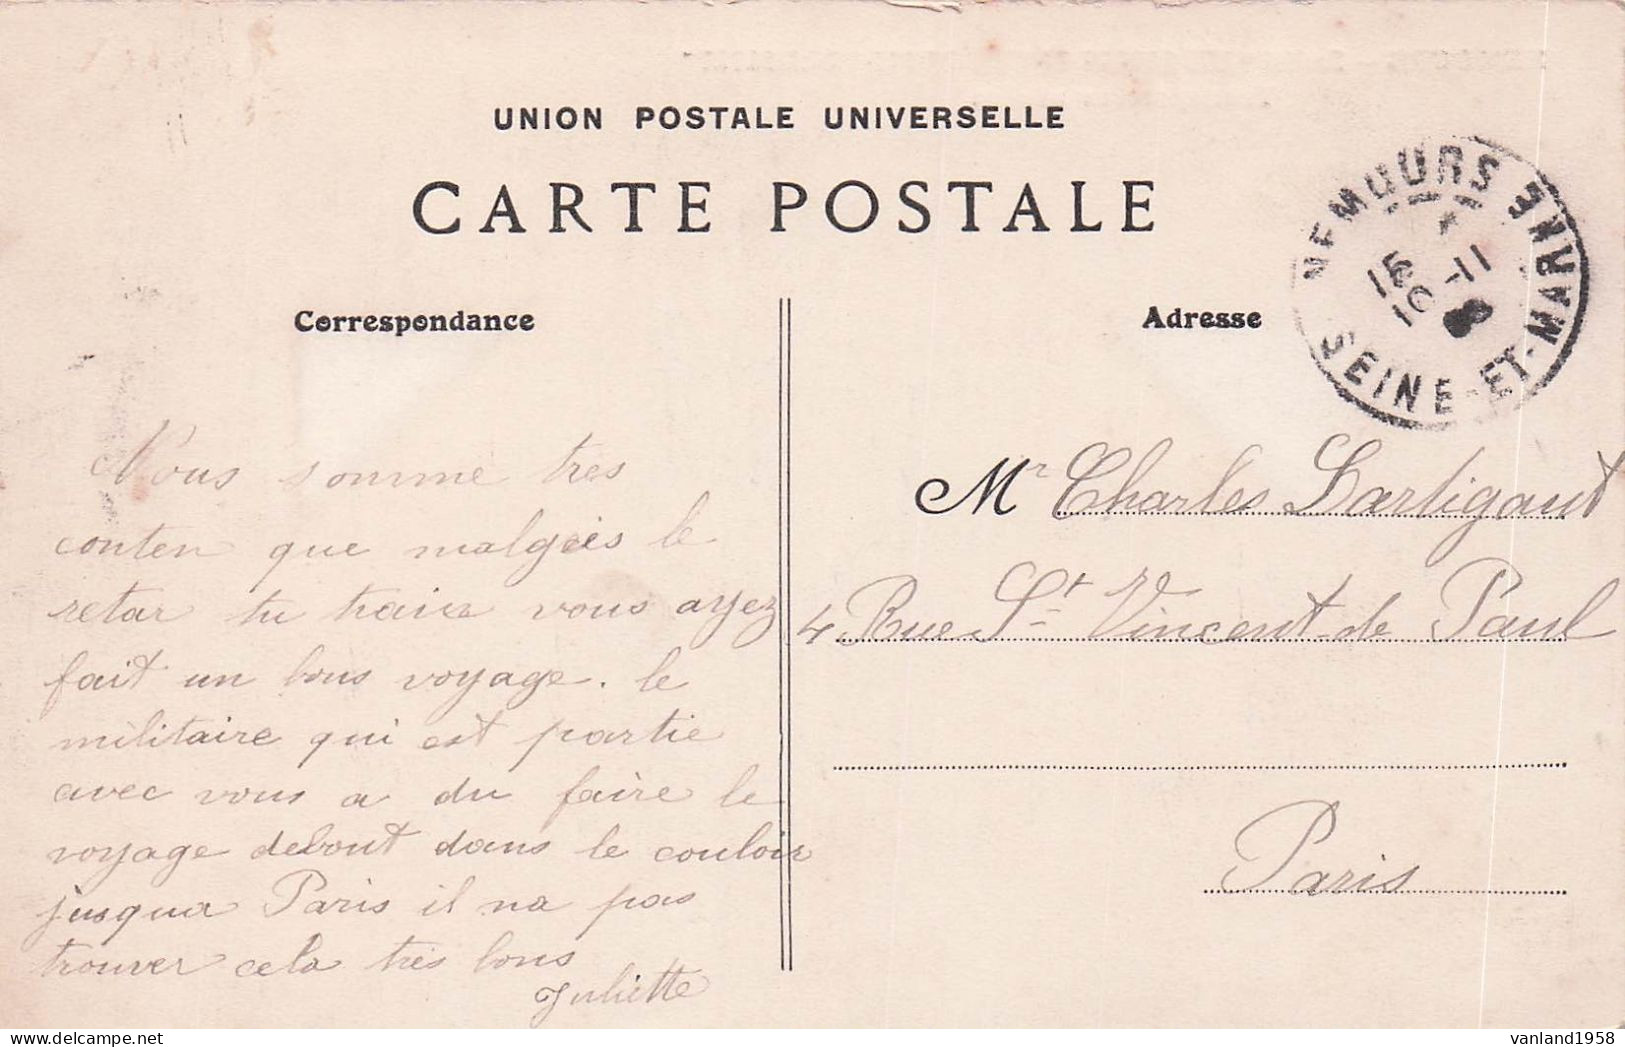 UNION POSTALE UNIVERSELLE
CARTE POSTALE
NEMOURS
SEINE-ET-MARNE
Correspondance
Nous somme tres
conten que malgres le
retar du traive vous ayez
fait un bons voyage. le
militaire qui est partie
avec vous a du faire le
voyage debout dans le couloir
jusqua Paris il na pas
trouver cela très bons
Juliette
Adresse
Mr Charles Lartigaut
4 Rue St Vincent-de Paul
Paris
vanland1958